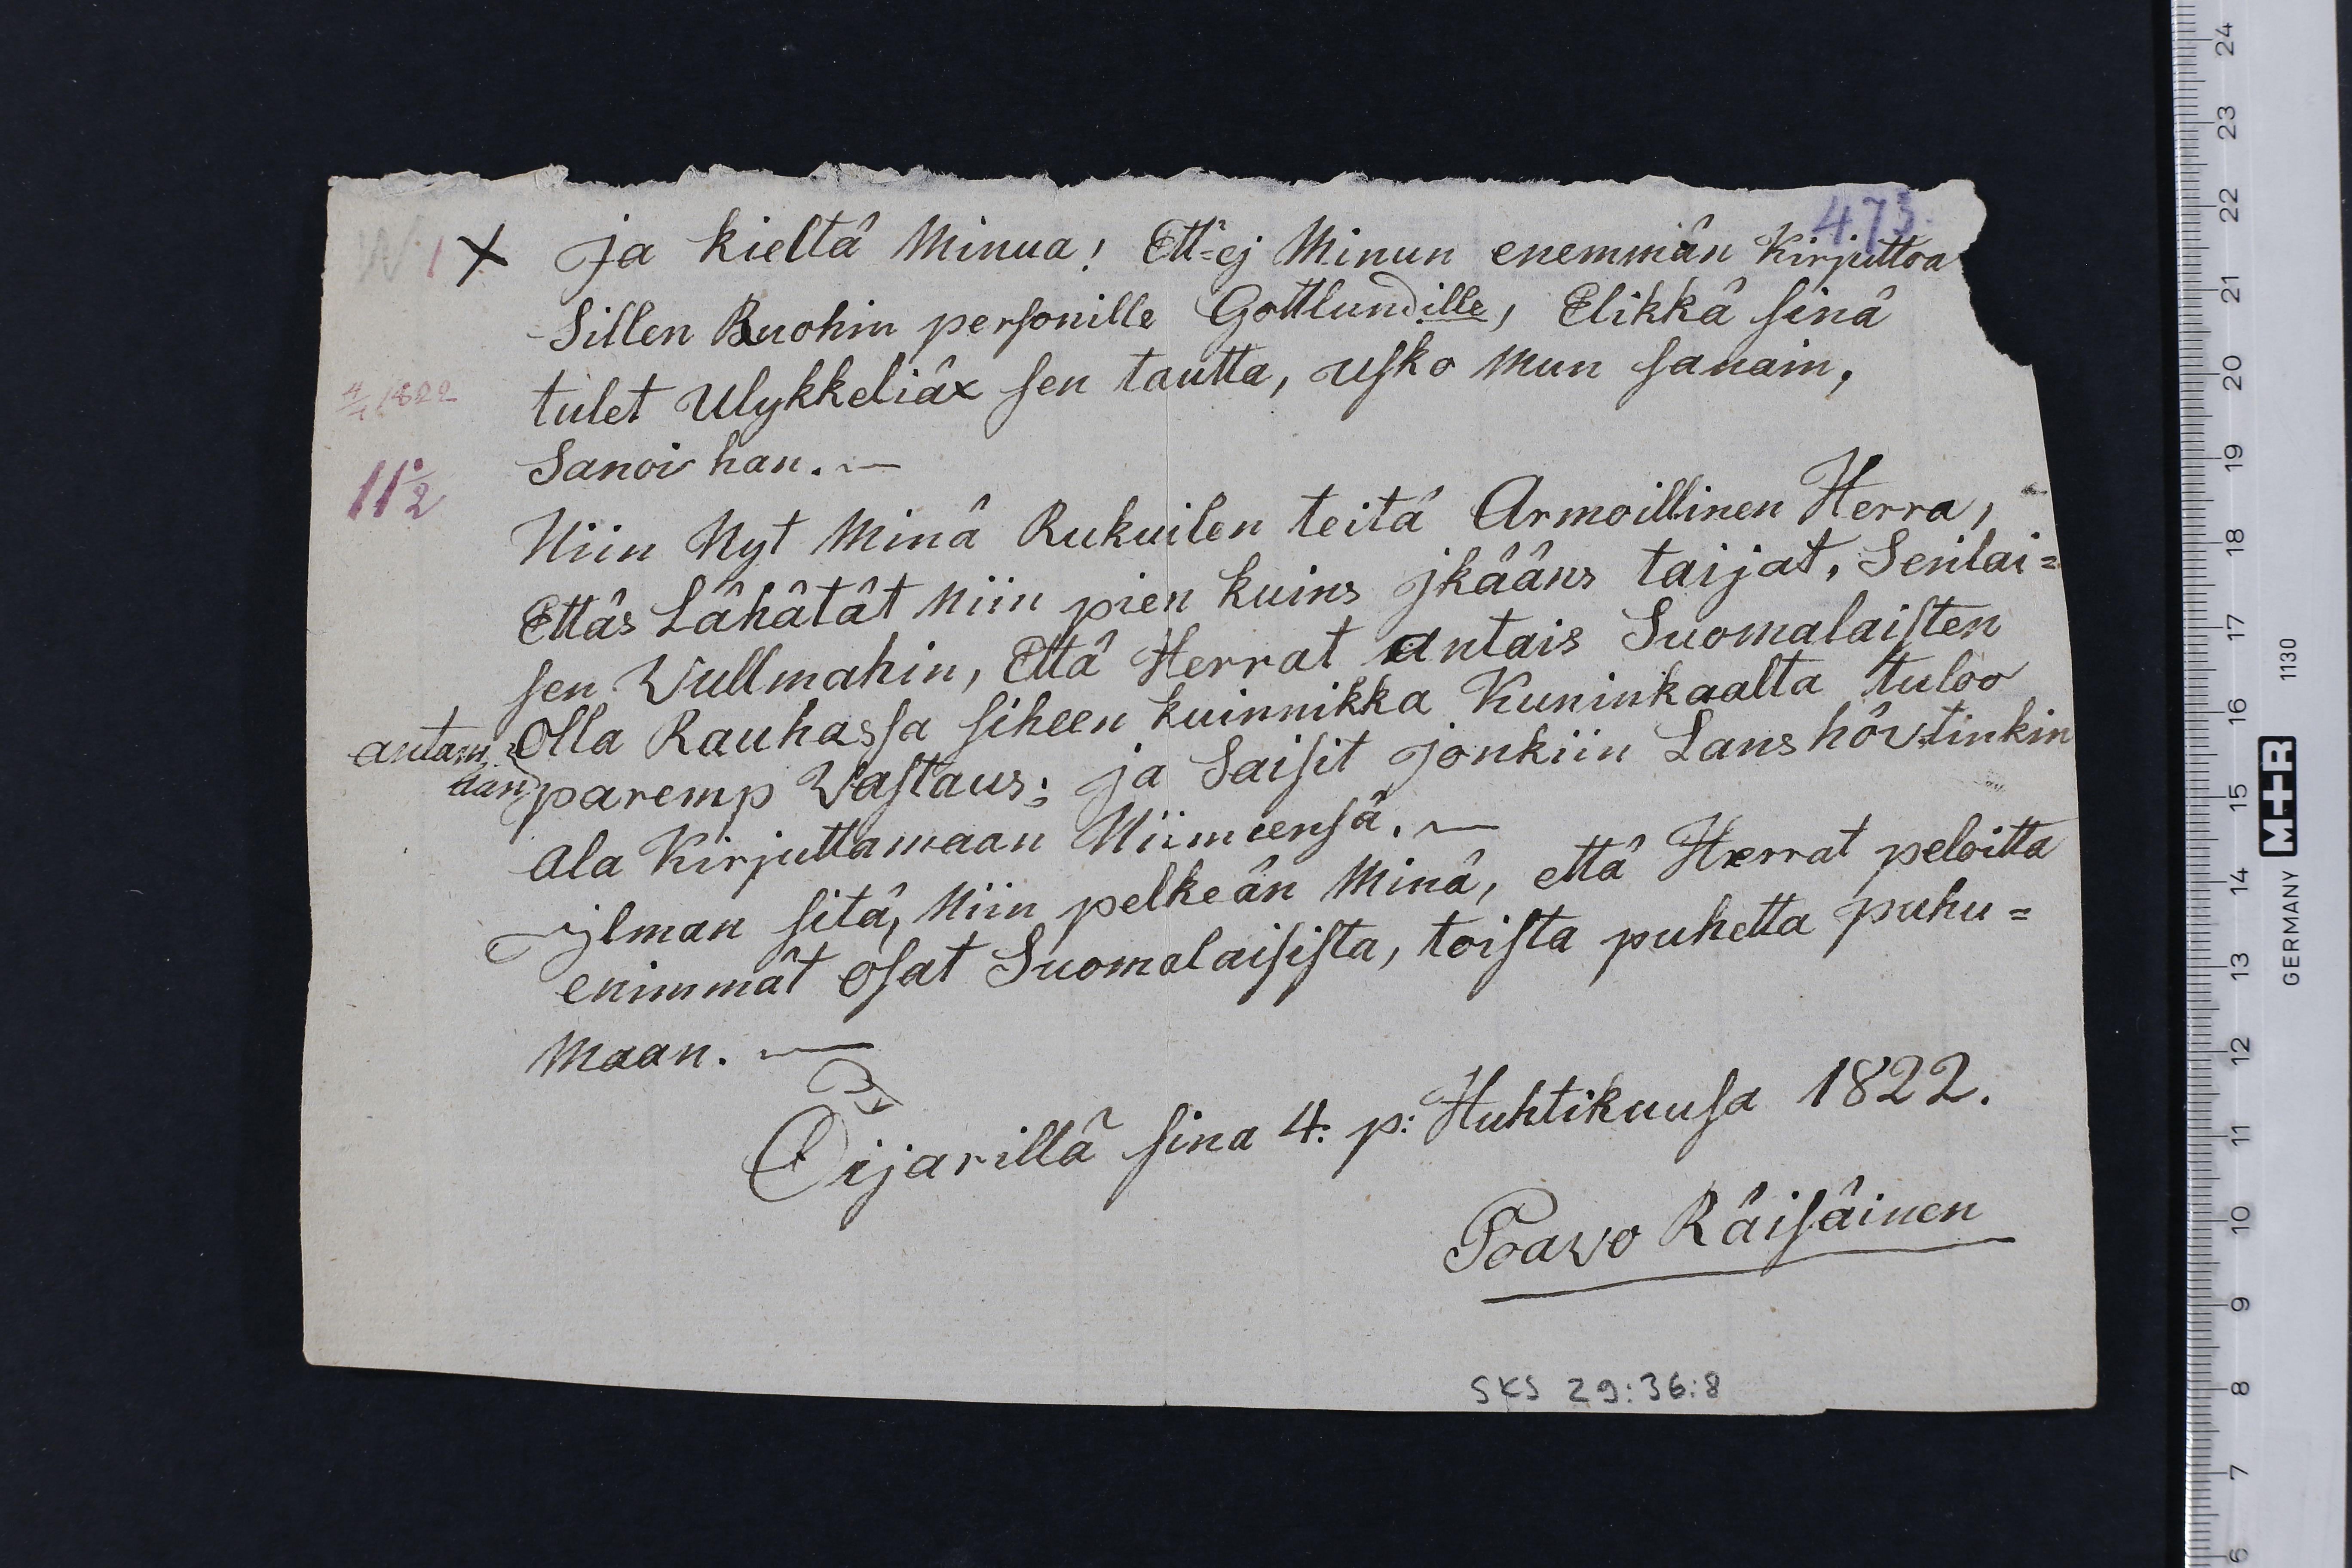 473.
N 1 X ja kieltä Minua! Ett-ej Minun enemmän Kirjuttoa
Sillen Ruohin personille Gottlundille, Elikkä sinä
4/4 1822 tulet Ulykkeliäx sen tautta, usko mun sanain,
Sanoi han. —
11½
Niin Nyt Minä Rukuilen teitä Armoillinen Herra,
Ettäs Lähätät niin pien kuins jkääns taijat, Senlai=
sen Vullmahin, Että Herrat antais Suomalaisten
Olla Rauhassa siheen kuinnikka Kuninkaalta tuloo
antam=
aan
paremp Vastaus; ja Saisit jonkiin Lanshövtinkin
ala Kirjuttamaan Niimeensä. —
jlman sitä, Niin pelkeän Minä, että Herrat peloitta
enimmät osat Suomalaisista, toista puhetta puhu=
maan. —
Oijarillä sina 4. p: Huhtikuusa 1822.
Poavo Räisäinen
SKS 29:36:8
24
23
22
21
20
19
18
17
16
15
14
13
12
11
10
9
8
7
6
GERMANY M+R 1130